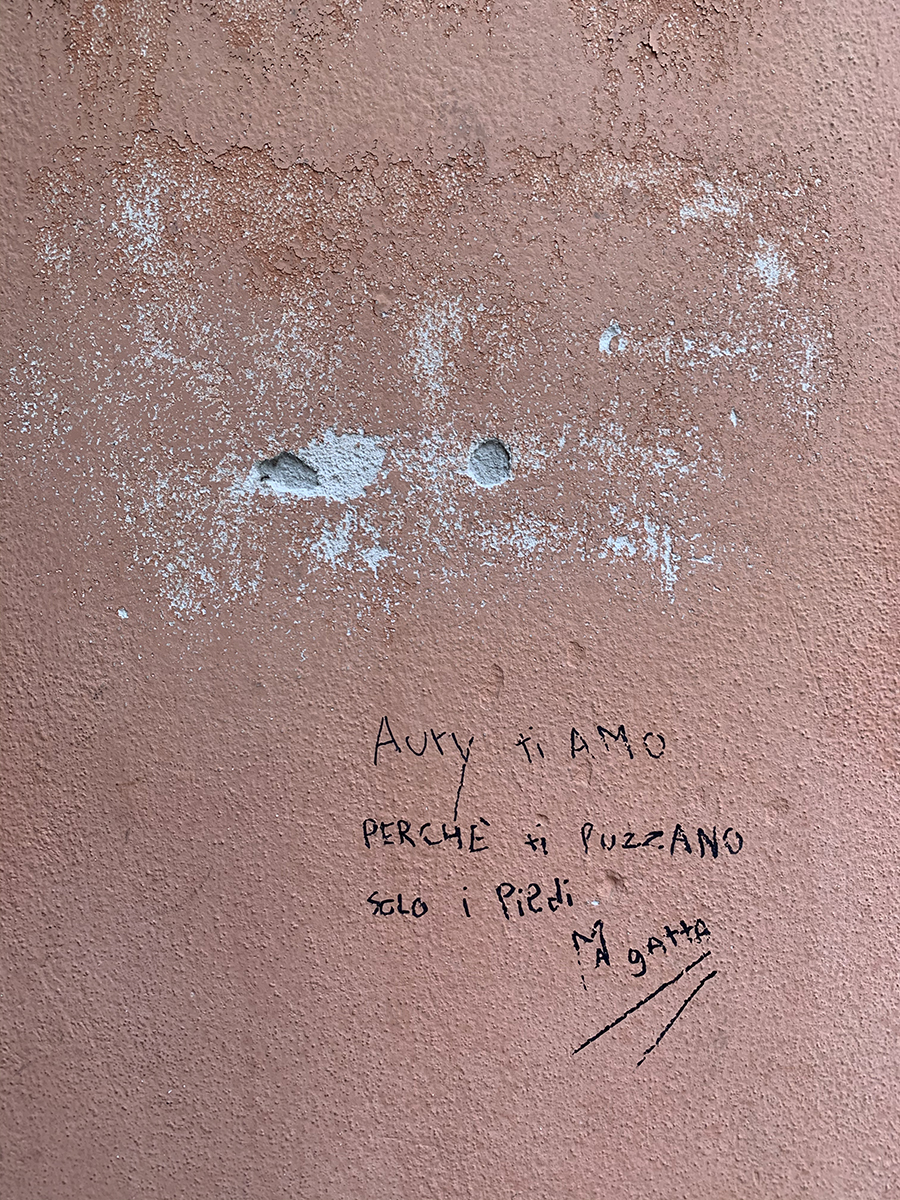 Aury ti AMO
PERCHÈ ti PUZZANO
SOLO i PiEdi
MA gAttA